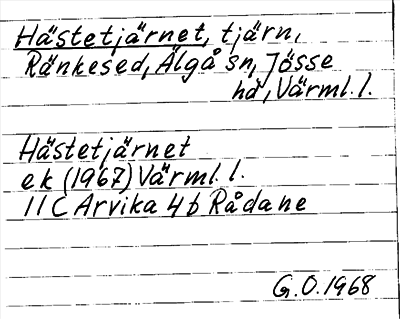 Hästetjärnet, tjärn,
Ränkesed, Älgå sn, Jösse
hd, Värml. l.
Hästetjärnet
ek (1967) Värml. l.
11 C Arvika 4 b Rådane
G.O. 1968